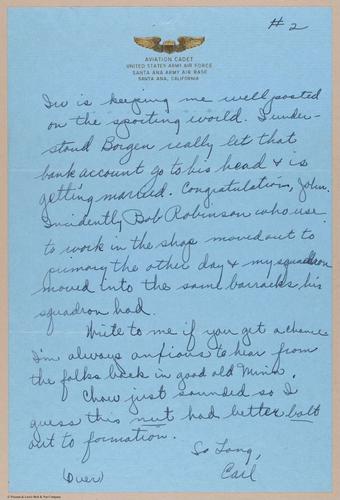 #2
AVIATION CADET
UNITED STATES ARMY AIR FORCE
SANTA ANA ARMY AIR BASE
SANTA ANA, CALIFORNIA
Irv is keeping me well posted
on the sporting world. I under-
stand Borgen really let that
bank account go to his head & is
getting married. Congratulations, John.
Incidently Bob Robinson who use
to work in the shop moved out to
primary the other day & my squadron
moved into the same barracks his
squadron had.
Write to me if you get a chance
I'm always anxious to hear from
the folks back in good old Minn.
Chow just sounded so I
guess this nut had better bolt
out to formation.
So Long,
Carl
(over)